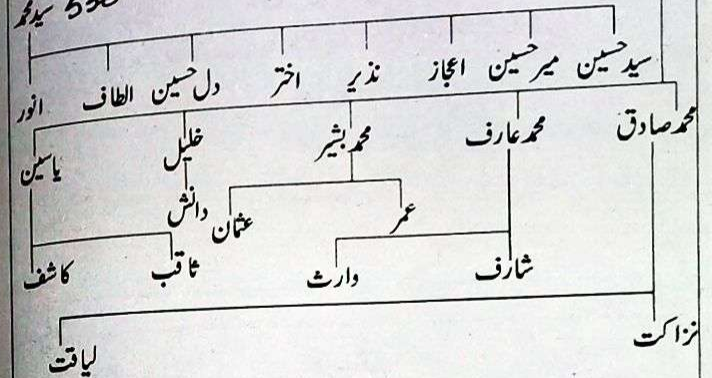 سید محمد
سید حسین میر حسین اعجاز نذیر اختر دل حسین الطاف انور
محمد صادق محمد عارف محمد بشیر خلیل یاسین
عمر عثمان دانش
شارف وارث ثاقب کاشف
نزاکت لیاقت